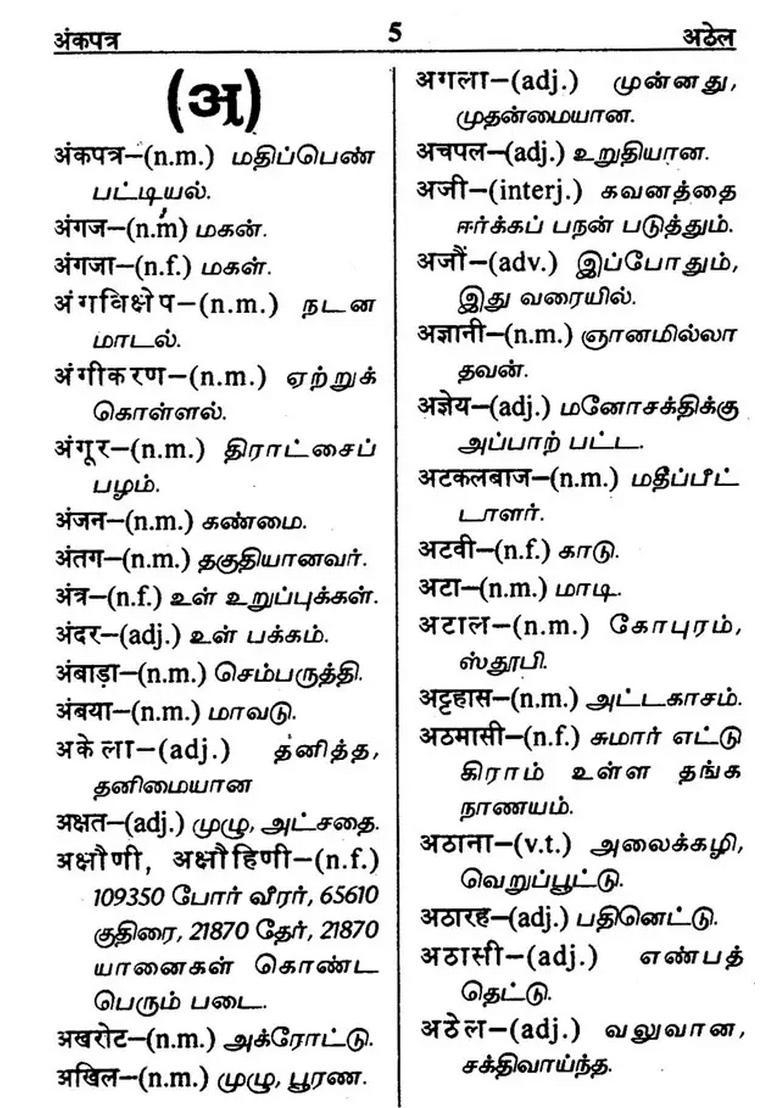 अंकपत्र 5 अठेल
(अ)
अंकपत्र–(n.m.) மதிப்பெண்
பட்டியல்.
अंगज–(n.m) மகன்.
अंगजा–(n.f.) மகள்.
अंगविक्षेप–(n.m.) நடன
மாடல்.
अंगीकरण–(n.m.) ஏற்றுக்
கொள்ளல்.
अंगूर–(n.m.) திராட்சைப்
பழம்.
अंजन–(n.m.) கண்மை.
अंतग–(n.m.) தகுதியானவர்.
अंत्र–(n.f.) உள் உறுப்புக்கள்.
अंदर–(adj.) உள் பக்கம்.
अंबाड़ा–(n.m.) செம்பருத்தி.
अंबया–(n.m.) மாவடு.
अकेला–(adj.) தனித்த,
தனிமையான
अक्षत–(adj.) முழு, அட்சதை.
अक्षौणी, अक्षौहिणी–(n.f.)
109350 போர் வீரர், 65610
குதிரை, 21870 தேர், 21870
யானைகள் கொண்ட
பெரும் படை.
अखरोट–(n.m.) அக்ரோட்டு.
अखिल–(n.m.) முழு, பூரண.
अगला–(adj.) முன்னது,
முதன்மையான.
अचपल–(adj.) உறுதியான.
अजी–(interj.) கவனத்தை
ஈர்க்கப் பநன் படுத்தும்.
अजौं–(adv.) இப்போதும்,
இது வரையில்.
अज्ञानी–(n.m.) ஞானமில்லா
தவன்.
अज्ञेय–(adj.) மனோசக்திக்கு
அப்பாற் பட்ட.
अटकलबाज–(n.m.) மதீப்பீட்
டாளர்.
अटवी–(n.f.) காடு.
अटा–(n.m.) மாடி.
अटाल–(n.m.) கோபுரம்,
ஸ்தூபி.
अट्टहास–(n.m.) அட்டகாசம்.
अठमासी–(n.f.) சுமார் எட்டு
கிராம் உள்ள தங்க
நாணயம்.
अठाना–(v.t.) அலைக்கழி,
வெறுப்பூட்டு.
अठारह–(adj.) பதினெட்டு.
अठासी–(adj.) எண்பத்
தெட்டு.
अठेल–(adj.) வலுவான,
சக்திவாய்ந்த.